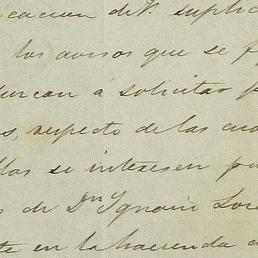 cacion de V. suplic
los avisos que se f
duzcan a solicitar p
s, respecto de las cua
llas se interesen pa
s de Dn Ignacio Lore
te en la hacienda d